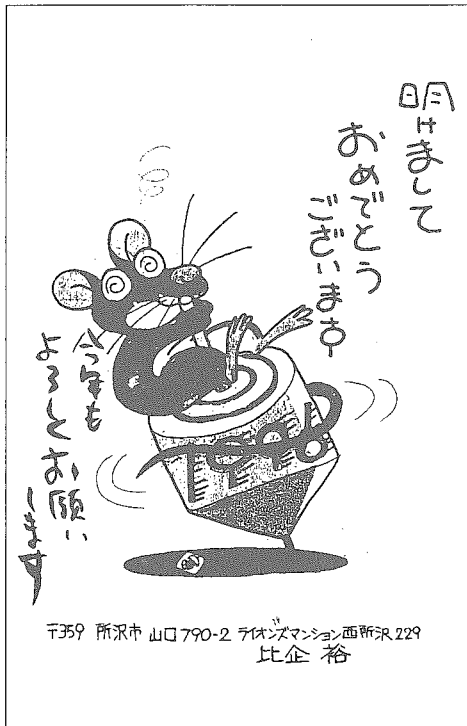 明けまして
おめでとう
ございます
1996
今年も
よろしくお願い
します
〒359 所沢市 山口 790-2 ライオンズマンション西所沢 229
比企 裕